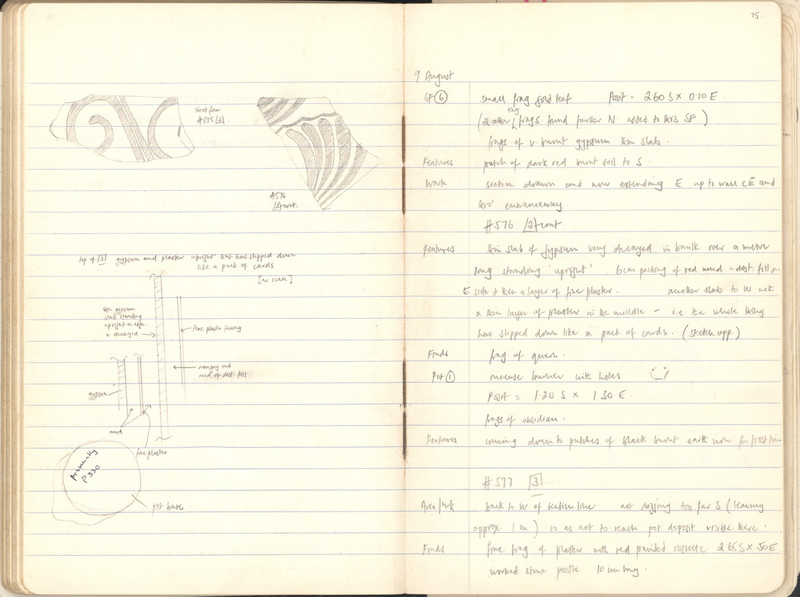 Sherd from
#575 [2].
#576
/2/ cont.
top of [3] gypsum and plaster upright that has slipped down
like a pack of cards
[no scale]
thin gypsum
slab standing
upright
v decayed
fine plaster facing
red
mud of dest. fill
gypsum
mud
fine plaster
P 330
pot base
75.
9 August
SF (6) small frag gold leaf Posit = 260 S x 010 E
(2 other tiny frags found further N added to this SF)
frags of v. burnt gypsum thin slabs.
Features patch of dark red burnt soil to S.
Work section drawn and now extending E up to wall and
this entranceway.
#576 /2/ cont
Features thin slab of gypsum very decayed in baulk over a metre
long standing 'upright'. 6cm packing of red mud = dest. fill on
E side & then a layer of fine plaster. another slab to W with
a thin layer of plaster in the middle – i.e. the whole thing
has slipped down like a pack of cards. (sketch opp.)
Finds frag of quern.
Pot (1) incense burner with holes
Posit = 1.20 S x 1.30 E.
frags of obsidian.
Features coming down to patches of black burnt earth now
#577 [3]
Area/Wk back to W of section line not digging too far S (leaving
approx. 1 m) so as not to reach pot deposit visible there.
Finds fine frag of plaster with red painted rosette 265 S x 50 E
worked stone pestle 10 cm long.